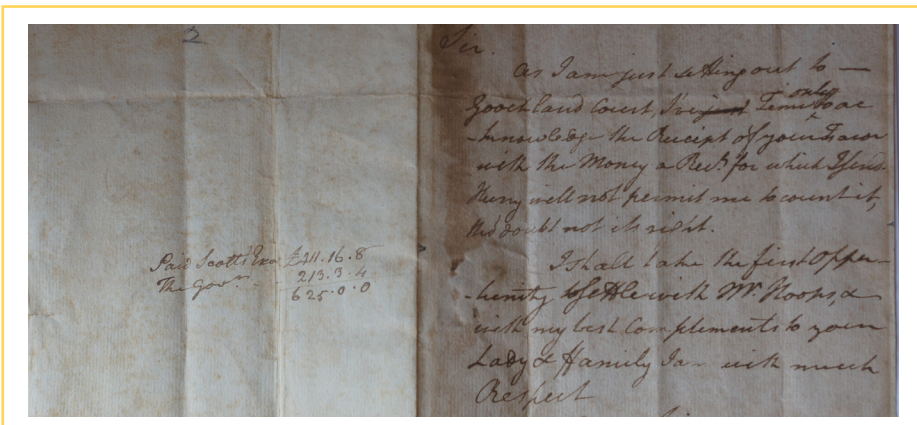 2
Paid Scotts Exo. £411.16.8
The Govr. - - 213.3.4
625.0.0
Sir.
As I am just setting out to —
Goochland Court, I've just Time only to ac
-knowledge the Receipt of your Favor
with the Money a Rect. for which I send.
Hurry will not permit me to count it,
tho' doubt not its right.
I shall take the first Oppor-
-tunity to settle with Mr. Hoops, &
with my best Complements to your
Lady & Family I am with much
Respect